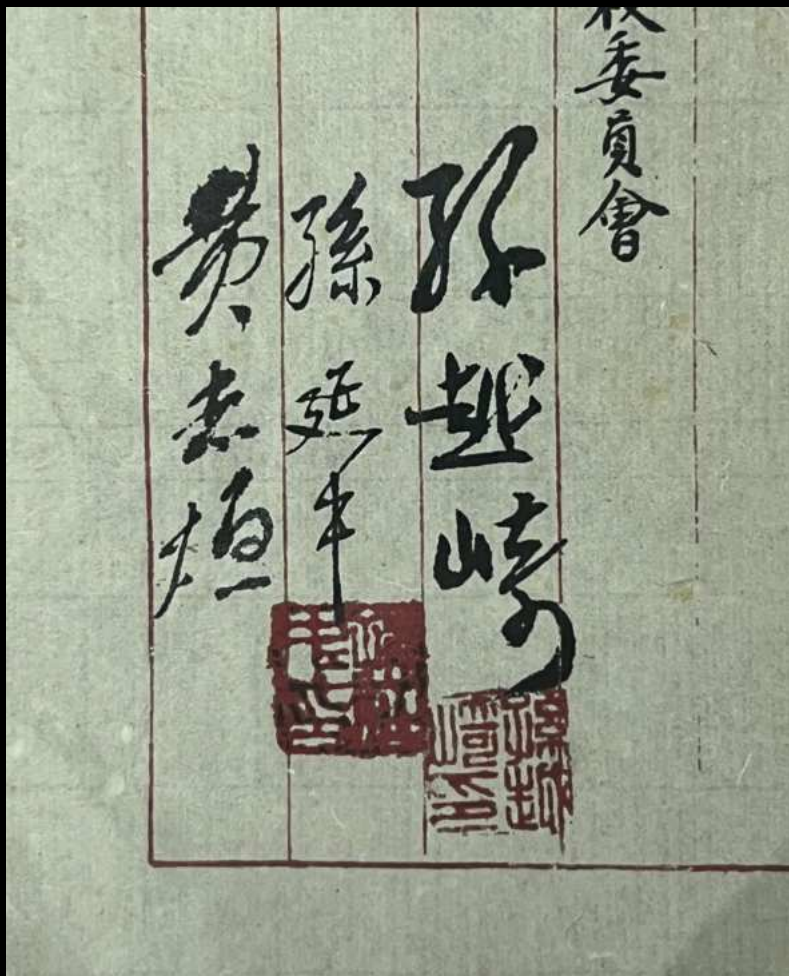 委員會
孫越崎
孫延中
黄志烜
孫越崎印